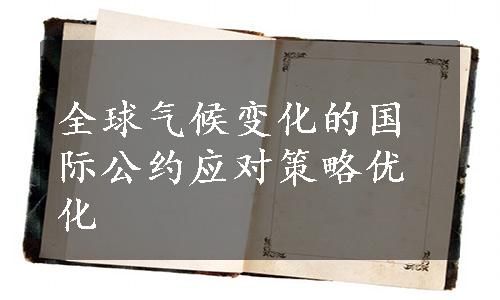 全球气候变化的国
际公约应对策略优
化